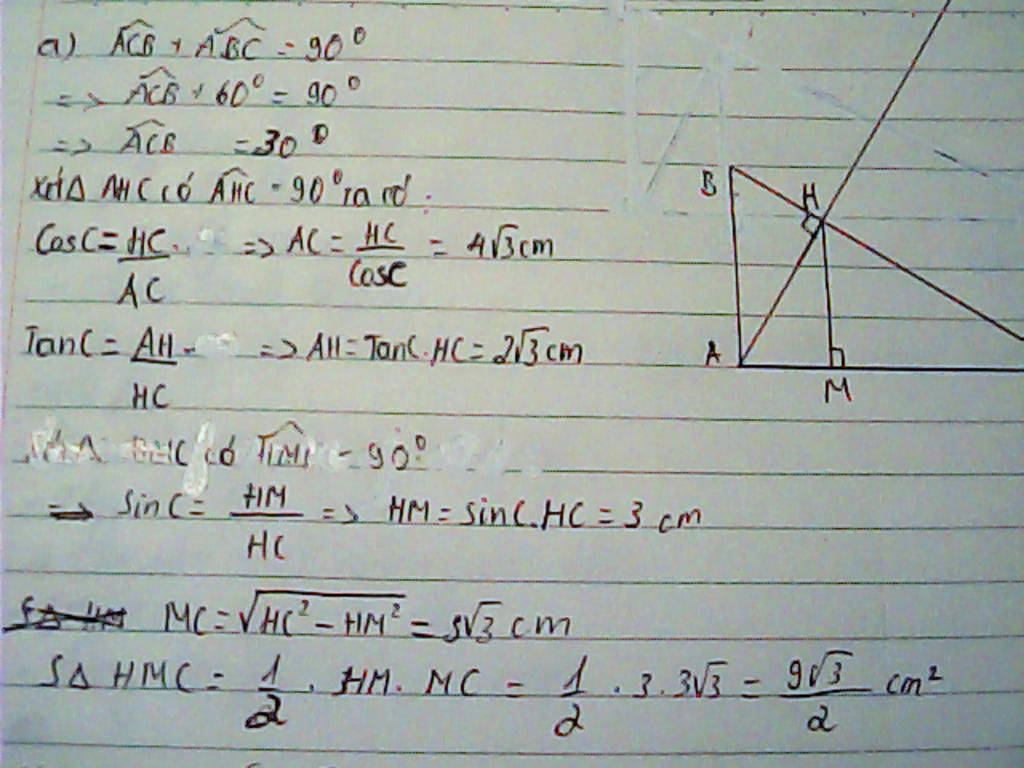 a) ACB + ABC = 90°
=> ACB + 60° = 90°
=> ACB = 30°
Xét Δ AHC có AHC = 90° ta có:
CosC = HC/AC => AC = HC/CosC = 4√3 cm
TanC = AH/HC => AH = TanC.HC = 2√3 cm
có = 90°
=> SinC = HM/HC => HM = sinC.HC = 3 cm
MC = √HC² - HM² = 3√3 cm
SΔ HMC = 1/2 . HM. MC = 1/2 . 3. 3√3 = 9√3/2 cm²
B
H
A
M